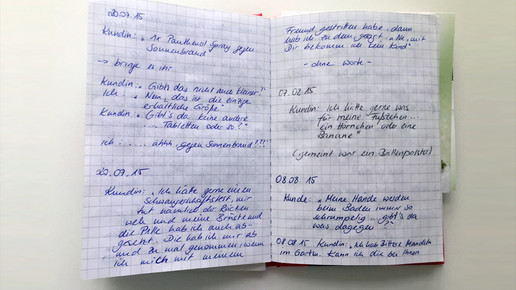 20.07.15
Kundin: "1x Panthenol Spray gegen
Sonnenbrand"
→ bringe es ihr
Kundin: "Gibt's das nicht auch kleiner?"
Ich: "Nein, das ist die einzige
erhältliche Größe"
Kundin: "Gibt's da keine andere
... Tabletten oder so?"
ich: ..... ähhh gegen Sonnenbrand?!?!
22.07.15
Kundin: "Ich hätte gerne einen
Schwangerschaftstest, mir
tut nämlich der Rücken
weh und meine Brüste und
die Pille hab ich auch ab-
gesetzt. Die hab ich nur ab
und zu mal genommen, wenn
ich mich mit meinem
Freund gestritten habe, dann
hab ich zu dem gesagt "Ne, mit
Dir bekomm ich kein Kind"
- ohne Worte -
07.08.15
Kundin: Ich hätte gerne was
für meine Fußzehen...
ein Hörnchen oder eine
Banane"
(gemeint war ein Ballenpolster)
08.08.15
Kunde: "Meine Hände werden
beim Baden immer so
schrumpelig... gibt's da
was dagegen?"
08.08.15 Kundin: "Ich hab Bitter Mandeln
im Garten. Kann ich die bei Ihnen